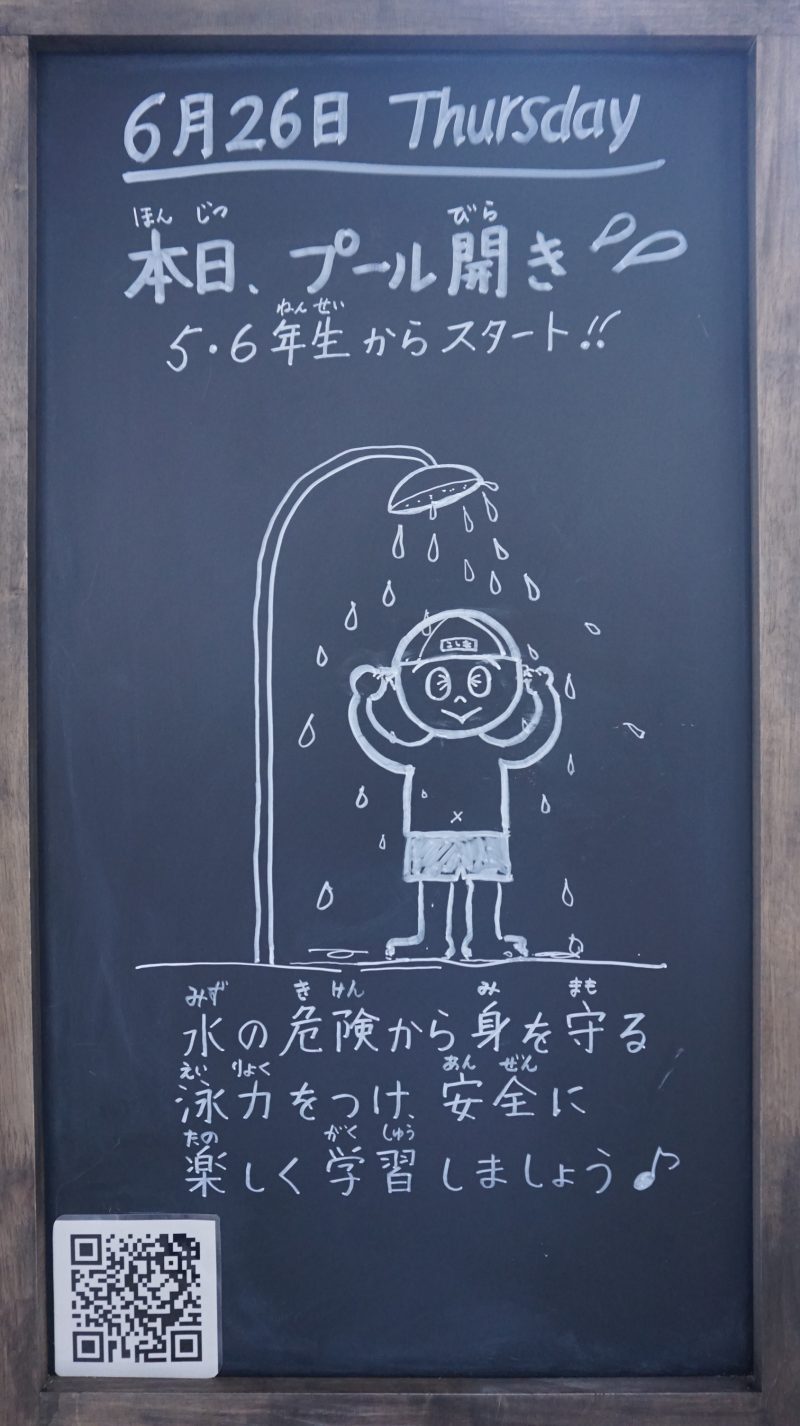 6月26日 Thursday
ほん じつ びら
本日、プール開き
ねん せい
5・6年生からスタート!!
みず き けん み まも
水の危険から身を守る
えい りょく あん ぜん
泳力をつけ、安全に
たの がく しゅう
楽しく学習しましょう♪